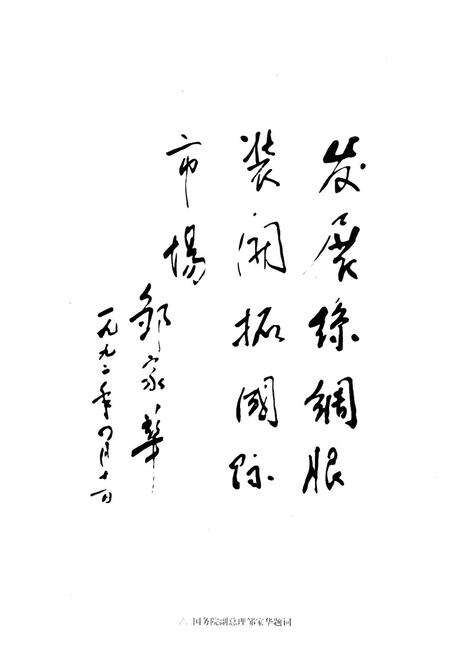 发展絲綢服
装開拓國际
市場
邹家華
一九九二年四月十一日
国务院副总理邹家华题词